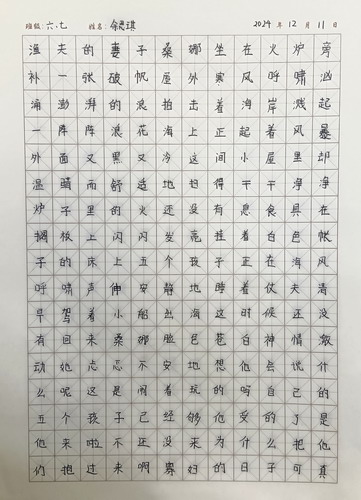 班级：六.七 姓名：余思琪 2024年12月11日
渔夫的妻子桑娜坐在火炉旁
补一张破帆屋外寒风呼啸汹
涌澎湃的浪拍击着海岸溅起
一阵阵浪花海上正起着风暴
外面又黑又冷这间小屋里却
温暖而舒适地扫得干干净净
炉子里的火还没有息食具在
搁板上闪闪发亮挂着白色帐
子的床上五个孩子正在海风
呼啸声伸安静地睡着仗夫清
早驾着小船出海这时候还没
有回来桑娜脸色苍白神情激
动她忐忑不安地想他会说什
么呢这是闹着玩的吗自己的
五个孩子已经够他受的了是
他来啦不还没来为什么把他
们抱过来啊寡妇的日子可真